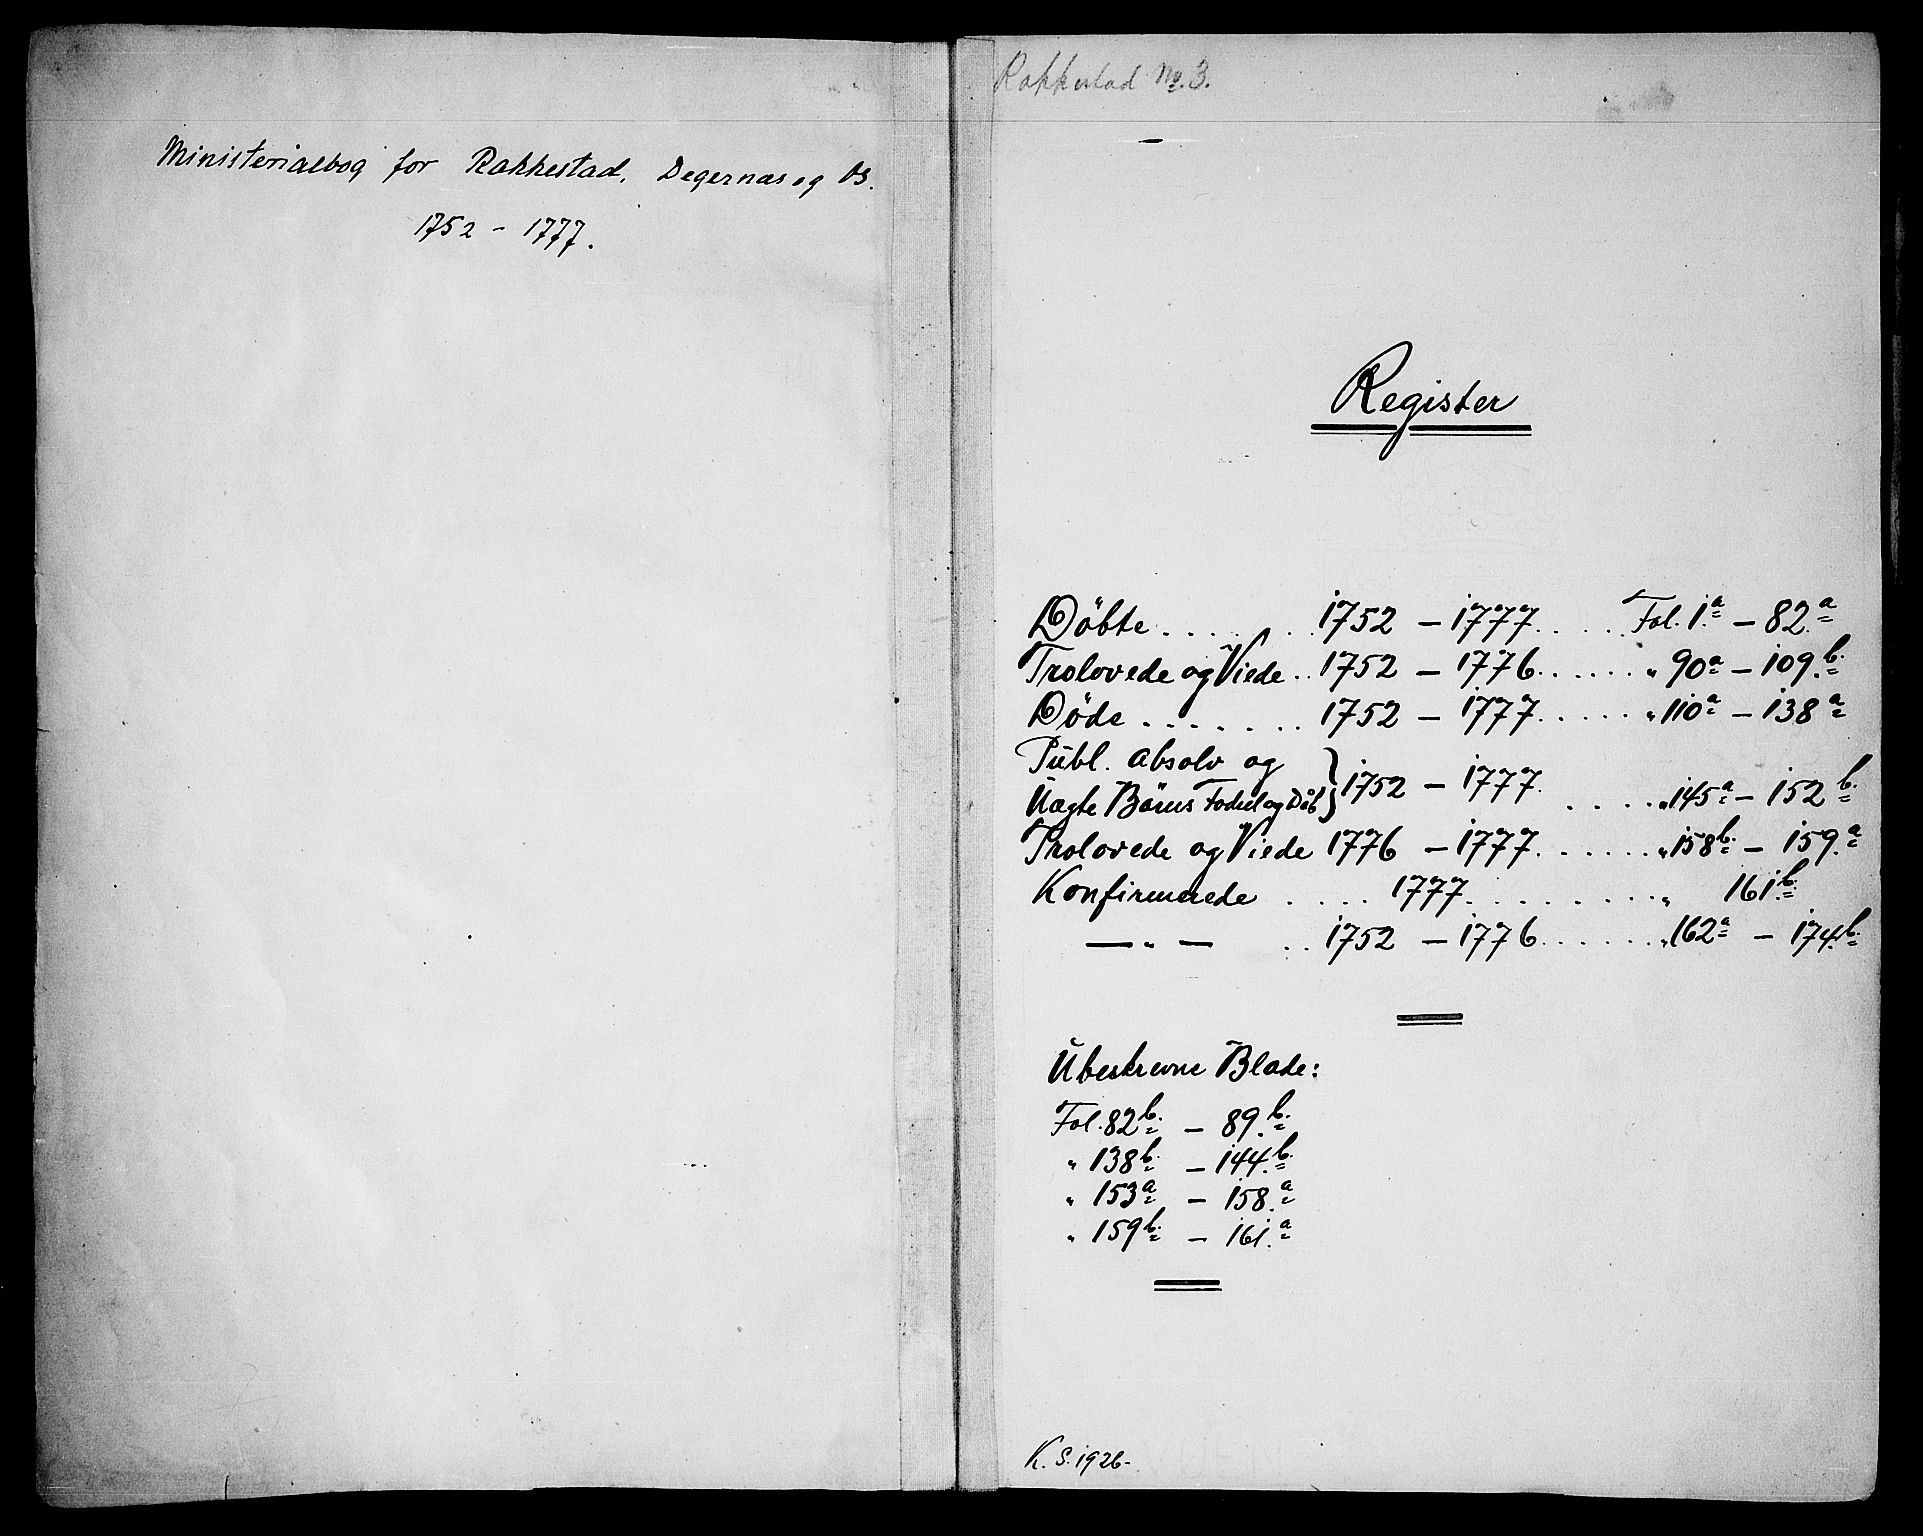 Ministerialbog for Rakkestad, Degernæs og Os.
1752 - 1777.
Rakkestad No. 3.
Register
Döbte . . . . . . . 1752 - 1777 . . . . . Fol. 1.a - 82.a
Trolovede og Viede . . 1752 - 1776 . . . . . . " 90a - 109.b.
Döde . . . . . . . 1752 - 1777 . . . . . " 110a - 138a
Publ. absolv og
Uægte Börns Födsel og Dåb } 1752 - 1777 . . . . . " 145a - 152b.
Trolovede og Viede 1776 - 1777 . . . . . . " 158b. - 159.a
Konfirmerede . . . . 1777 . . . . . . . . . " 161b.
— " — . . 1752 - 1776 . . . . . . " 162a - 174.b.
Ubeskrevne Blade:
Fol. 82b. - 89.b.
" 138b. - 144.b.
" 153a - 158.a
" 159b. - 161.a
K. S. 1926.